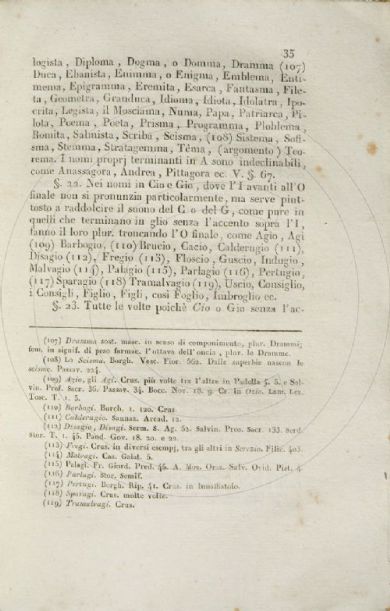 35
logista, Diploma, Dogma, o Domma, Dramma (107)
Duca, Ebanista, Enimma, o Enigma, Emblema, Enti-
mema, Epigramma, Eremita, Esarca, Fantasma, File-
ta, Geometra, Granduca, Idioma, Idiota, Idolatra, Ipo-
crita, Legista, il Moscianna, Numa, Papa, Patriarca, Pi-
lota, Poema, Poeta, Prisma, Programma, Ploblema,
Romita, Salmista, Scriba, Scisma, (108) Sistema, Sofi-
sma, Stemma, Stratagemma, Tèma, (argomento) Teo-
rema. I nomi proprj terminanti in A sono indeclinabili,
come Anassagora, Andrea, Pittagora ec. V. §. 67.
§. 22. Nei nomi in Cio e Gio, dove l'I avanti all'O
finale non si pronunzia particolarmente, ma serve piut-
tosto a raddolcire il suono del C o del G, come pure in
quelli che terminano in glio senza l'accento sopra l'I,
fanno il loro plur. troncando l'O finale, come Agio, Agi
(109) Barbogio, (110) Brucio, Cacio, Calderugio (111),
Disagio (112), Fregio (113), Floscio, Guscio, Indugio,
Malvagio (114), Palagio (115), Parlagio (116), Pertugio,
(117) Sparagio (118) Tramalvagio (119), Uscio, Consiglio,
i Consigli, Figlio, Figli, così Foglio, Imbroglio ec.
§. 23. Tutte le volte poichè Cio o Gio senza l'ac-
(107) Dramma sost. masc. in senso di componimento, plur. Drammi;
fem. in signif. di peso formae. l'ottava dell'oncia, plur. le Dramme.
(108) La Scisma. Borgh. Vesc. Fior. 562. Dalle superbie nascon le
scisme. Passav. 224.
(109) Agio, gli Agi. Crus. più volte tra l'altre in Padella §. 5. e Sal-
vin. Pros. Sacr. 36. Passav. 34. Bocc. Nov. 18. 9. Cr. in Ozio. Lam. Lez.
Tosc. T. 1. 5.
(110) Barbogi. Burch. 1. 120. Crus.
(111) Calderugio. Sannaz. Arcad. 12.
(112) Disagio, Disagi. Serm. S. Ag. 52. Salvin. Pros. Sacr. 133. Serd.
Stor. T. 1. 45. Pand. Gov. 18. 20. e 22.
(113) Fregi. Crus. in diversi esempj, tra gli altri in Servaio. Filic. 403.
(114) Malvagi. Cas. Galat. 5.
(115) Palagi. Fr. Giord. Pred. 46. A. Mon. Oraz. Salv. Ovid. Pist. 4
(116) Parlagi. Stor. Semif.
(117) Pertugi. Borgh. Rip. 41. Crus. in Innaffiatoio.
(118) Sparagi. Crus. molte volte.
(119) Tramalvagi. Crus.